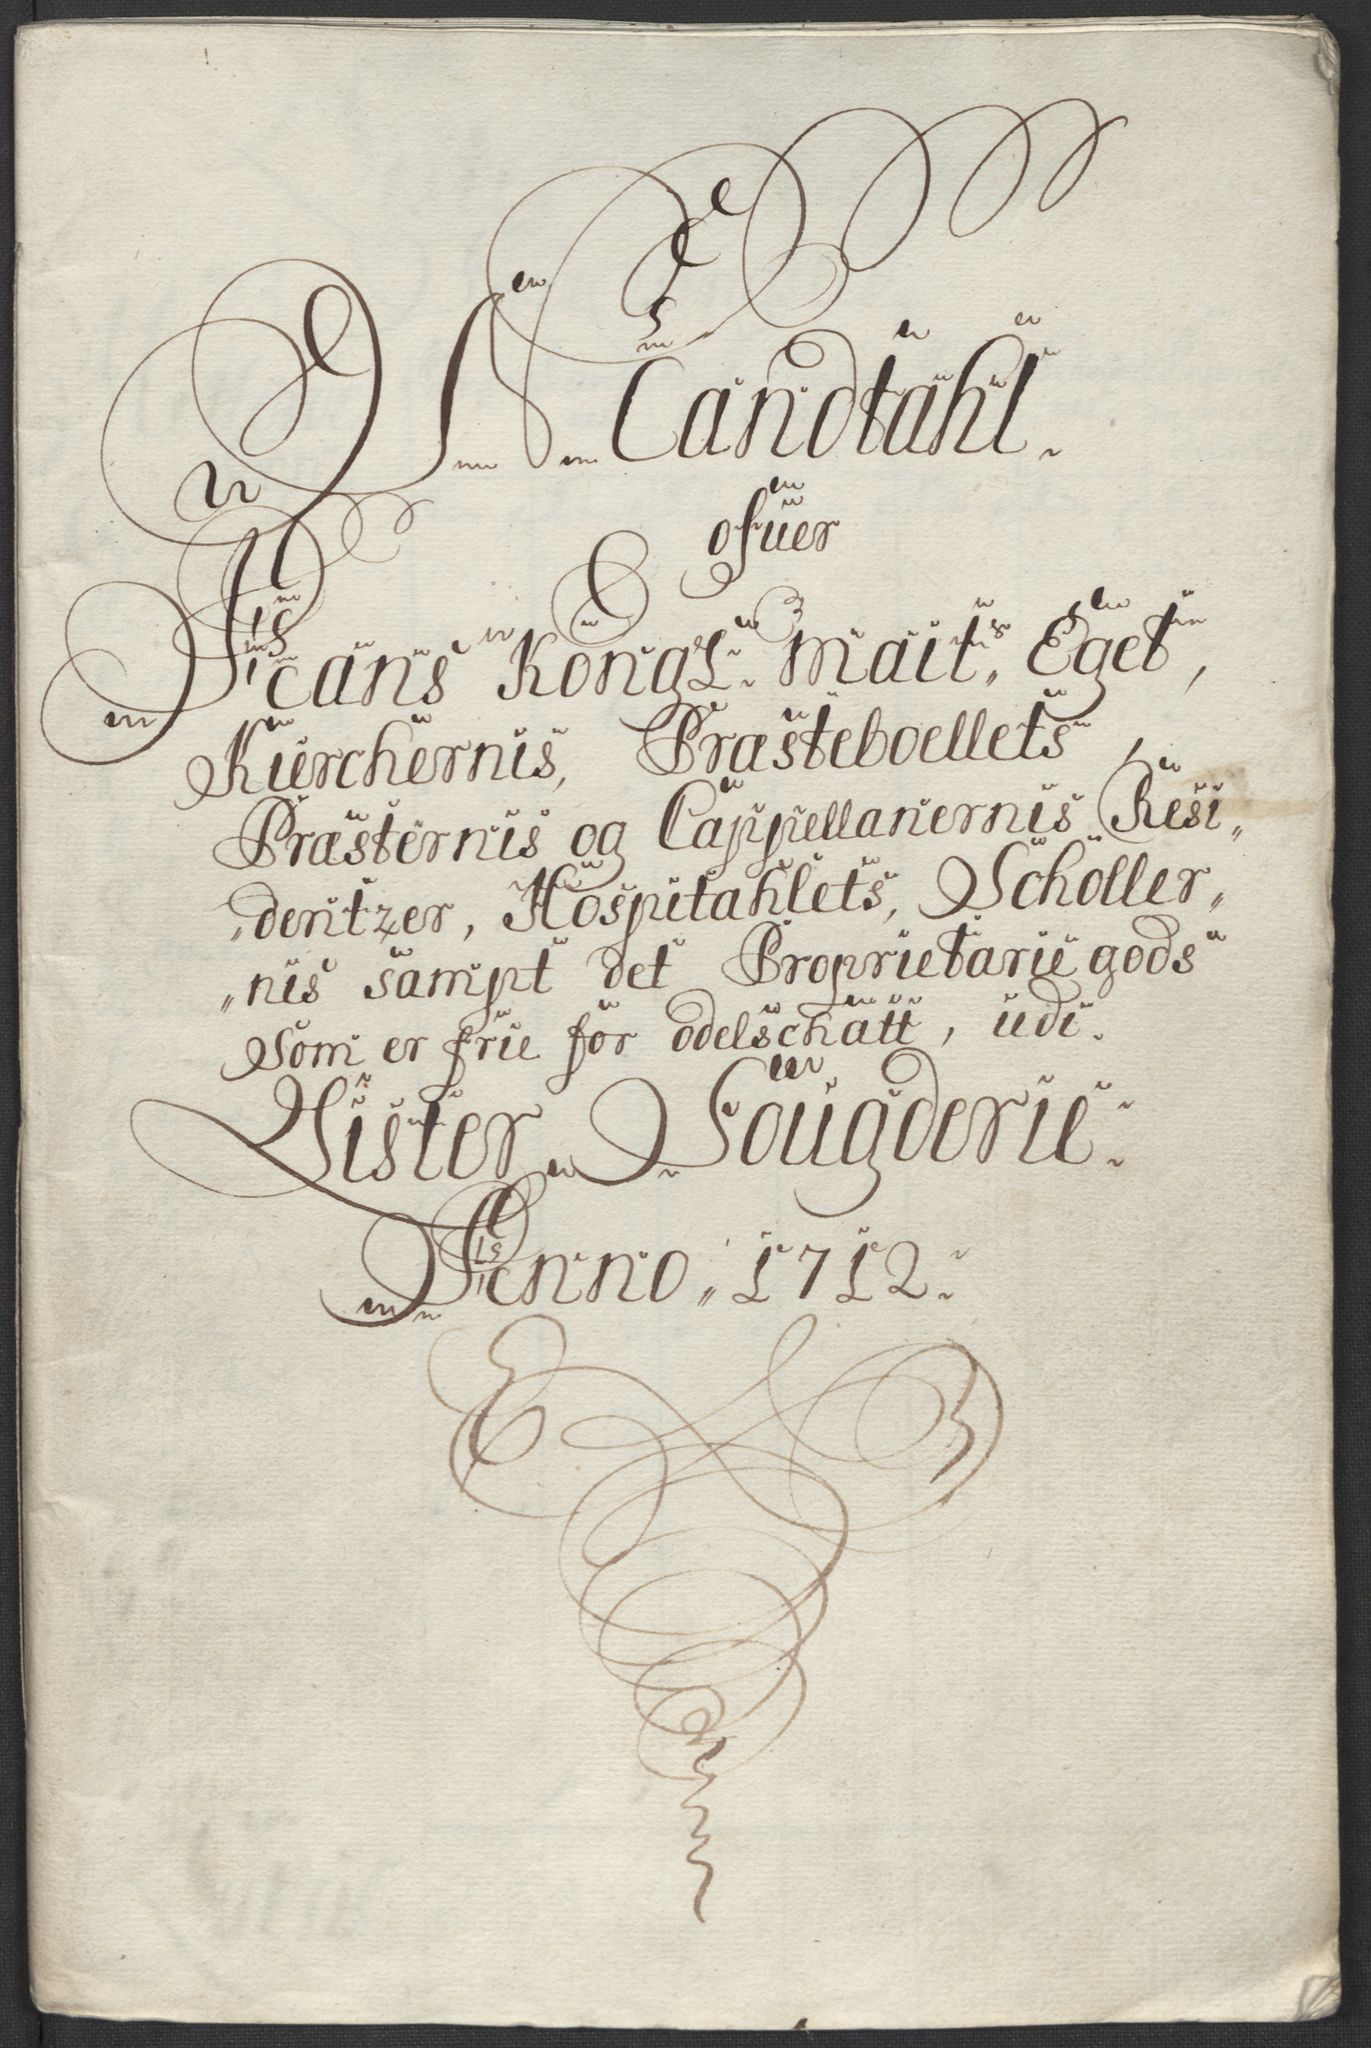 Mandtahl
ofuer
Hans Kongl: Maits, Eget,
Kierchernis, Præsteboellets,
Præsternis og Cappellanernis Resi„
„dentzer, Hospitahlets, Scholler„
„nis sampt det Proprietarie gods
som er frie for odelschatt, udi
Lister Fougderie
Anno 1712